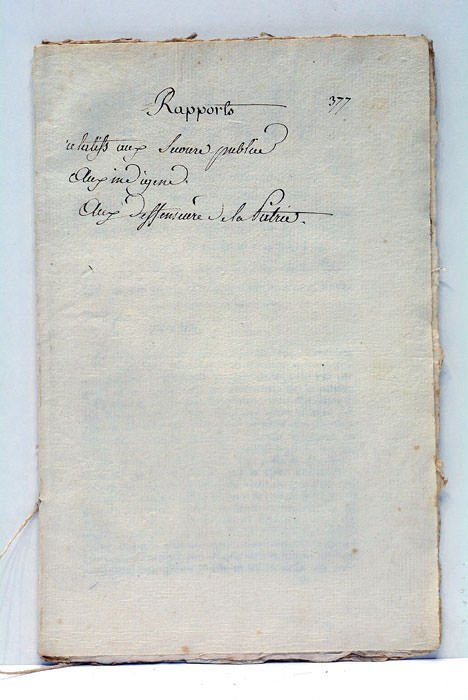 Rapports 377
relatifs aux Secours publics
Aux indigens.
Aux deffenseurs de la Patrie.